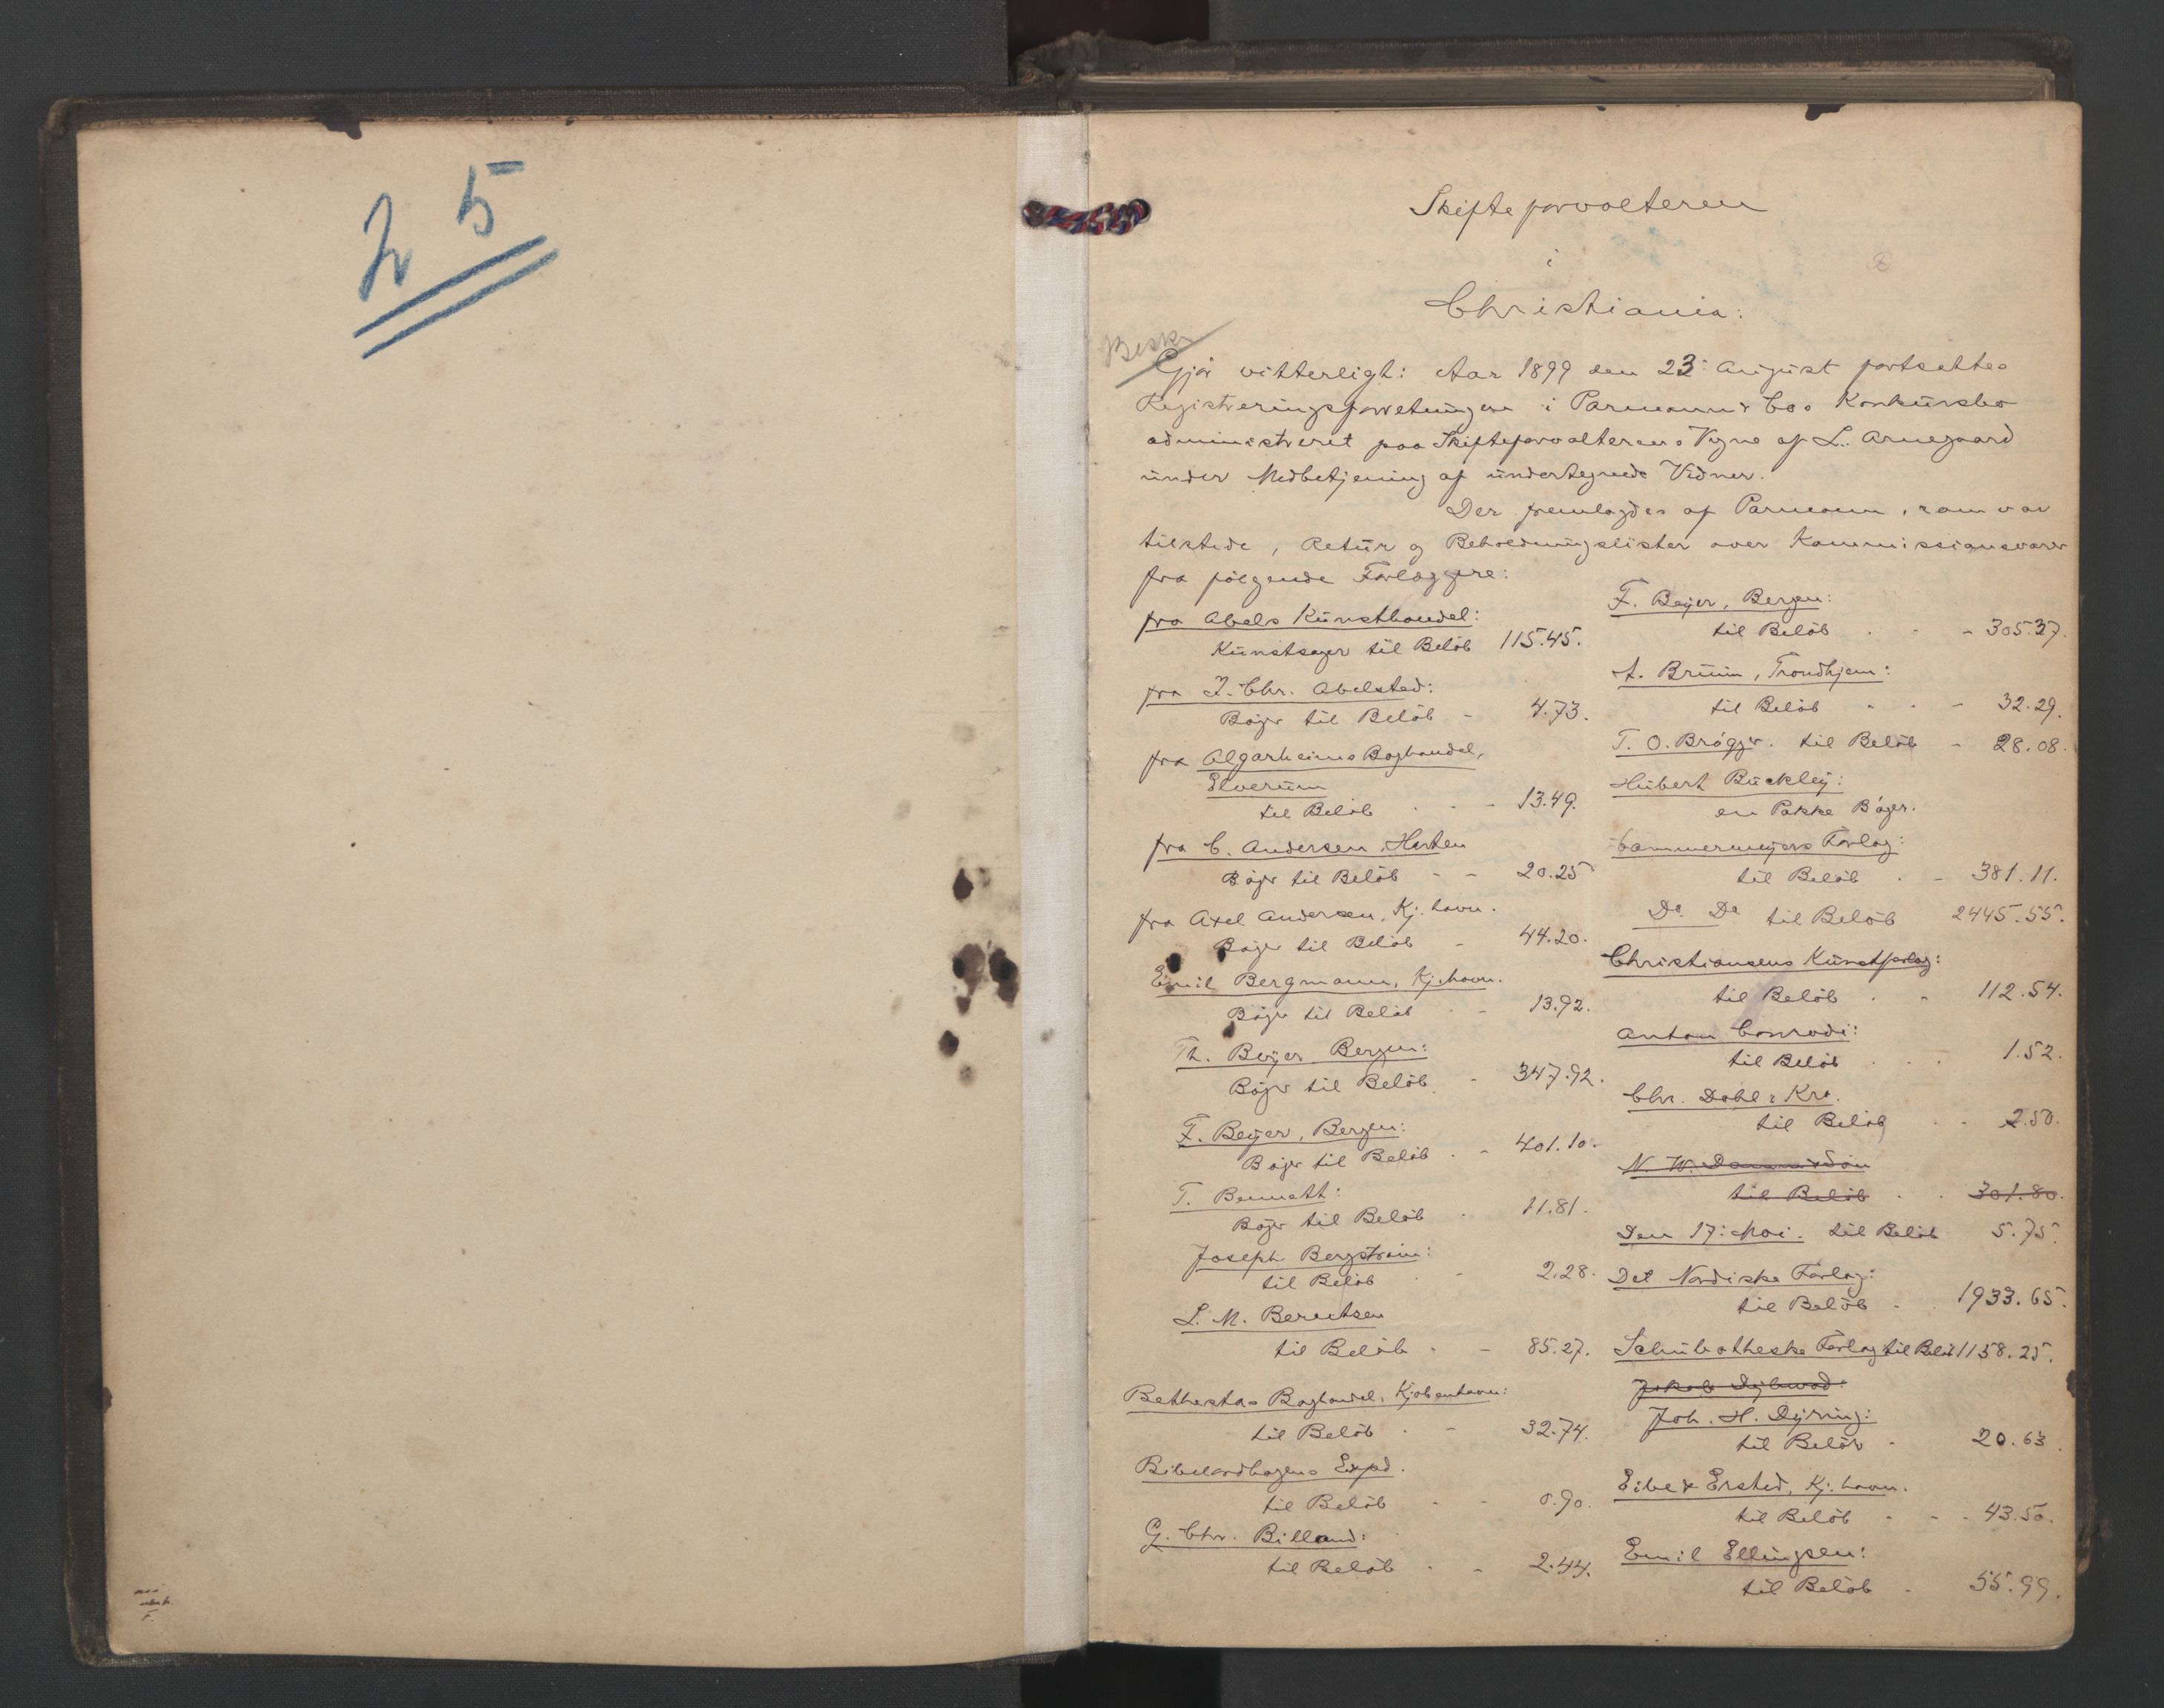 25
Skifteforvalteren
i
Christiania:
Gjør vitterligt: Aar 1899 den 23: August fortsattes
Registreringsforretningen i Parmann & Co.s Konkursbo
administreret paa Skifteforvalterens Vegne af L. Arnegaard
under Medbetjening af undertegnede Vidner.
Der fremlagdes af Parmann, som var
tilstede, Retur og Beholdningslister over Kommissionsvarer
fra følgende Forlæggere:
fra Abels Kunsthandel:
Kunstsager til Beløb 115.45.
fra J. Chr. Abelsted:
Bøger til Beløb - 4.73.
fra Algarheims Boghandel,
Elverum
til Beløb - 13.49.
fra C. Andersen, Horten
Bøger til Beløb - - 20.25
fra Axel Andersen, Kj.havn.
Bøger til Beløb - 44.20.
Emil Bergmann, Kj.havn.
Bøger til Beløb - 13.92.
Th. Beyer Bergen:
Bøger til Beløb - 347.92.
F. Beyer, Bergen:
Bøger til Beløb - 401.10.
T. Bennett:
Bøger til Beløb 11.81.
Joseph Bergstrøm:
til Beløb - 2.28.
L. M. Berntsen
til Beløb - 85.27.
Bethestas Boghandel, Kjøbenhavn:
til Beløb - 32.74.
Expd.
til Beløb - - 0.90.
G. Chr. Billand:
til Beløb - 2.44.
F. Beyer, Bergen:
til Beløb - - 305.37.
A. Bruun, Trondhjem:
til Beløb - - 32.29.
T. O. Brøgger. til Beløb - 28.08.
Hubert Buckley:
en Pakke Bøger.
Cammermeyers Forlag:
til Beløb - 381.11.
Do. Do til Beløb 2445.55.
Christiansens Kunstforlag:
til Beløb - 112.54.
Anton Conrodi:
til Beløb 1.52.
Chr. Dahl, Kra.
til Beløb - 2.50.
N. W. Damm & Søn
til Beløb 301.80.
Den 17: Mai. til Beløb 5.75.
Det Nordiske Forlag:
til Beløb - 1933.65.
Schubotheske Forlag til Beløb 1158.25.
Jakob Dybwad:
Joh. H. Dyring:
til Beløb - 20.63.
Eibe & Ersted, Kj.havn.
til Beløb - - 43.50.
Emil Ellingsen:
til Beløb - 55.99.